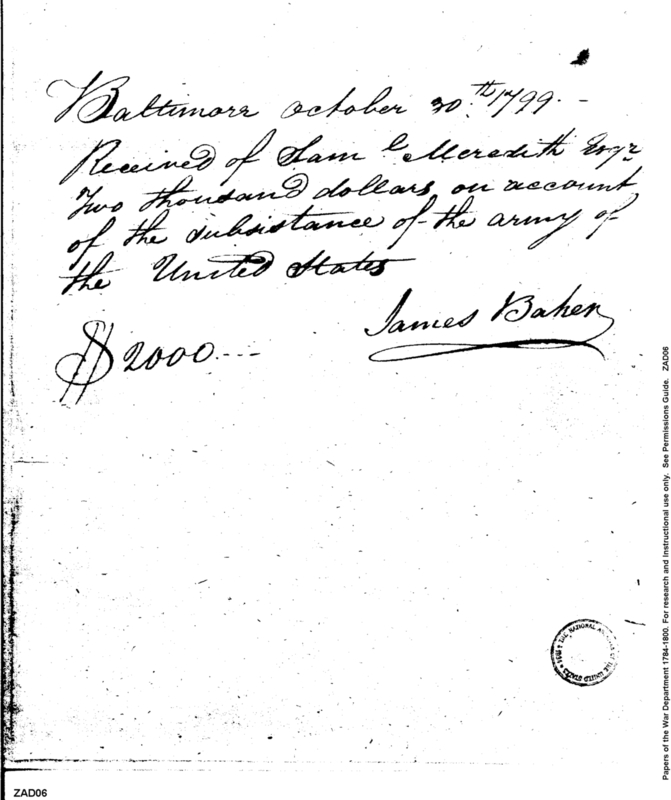 Baltimore october 30th 1799. -
Received of Saml Meredith Esqr
Two thousand dollars on account
of the subsistance of the army of
the United States
James Baker
$ 2000 ---
THE NATIONAL ARCHIVES OF THE UNITED STATES
Papers of the War Department 1784-1800. For research and Instructional use only. See Permissions Guide. ZAD06
ZAD06